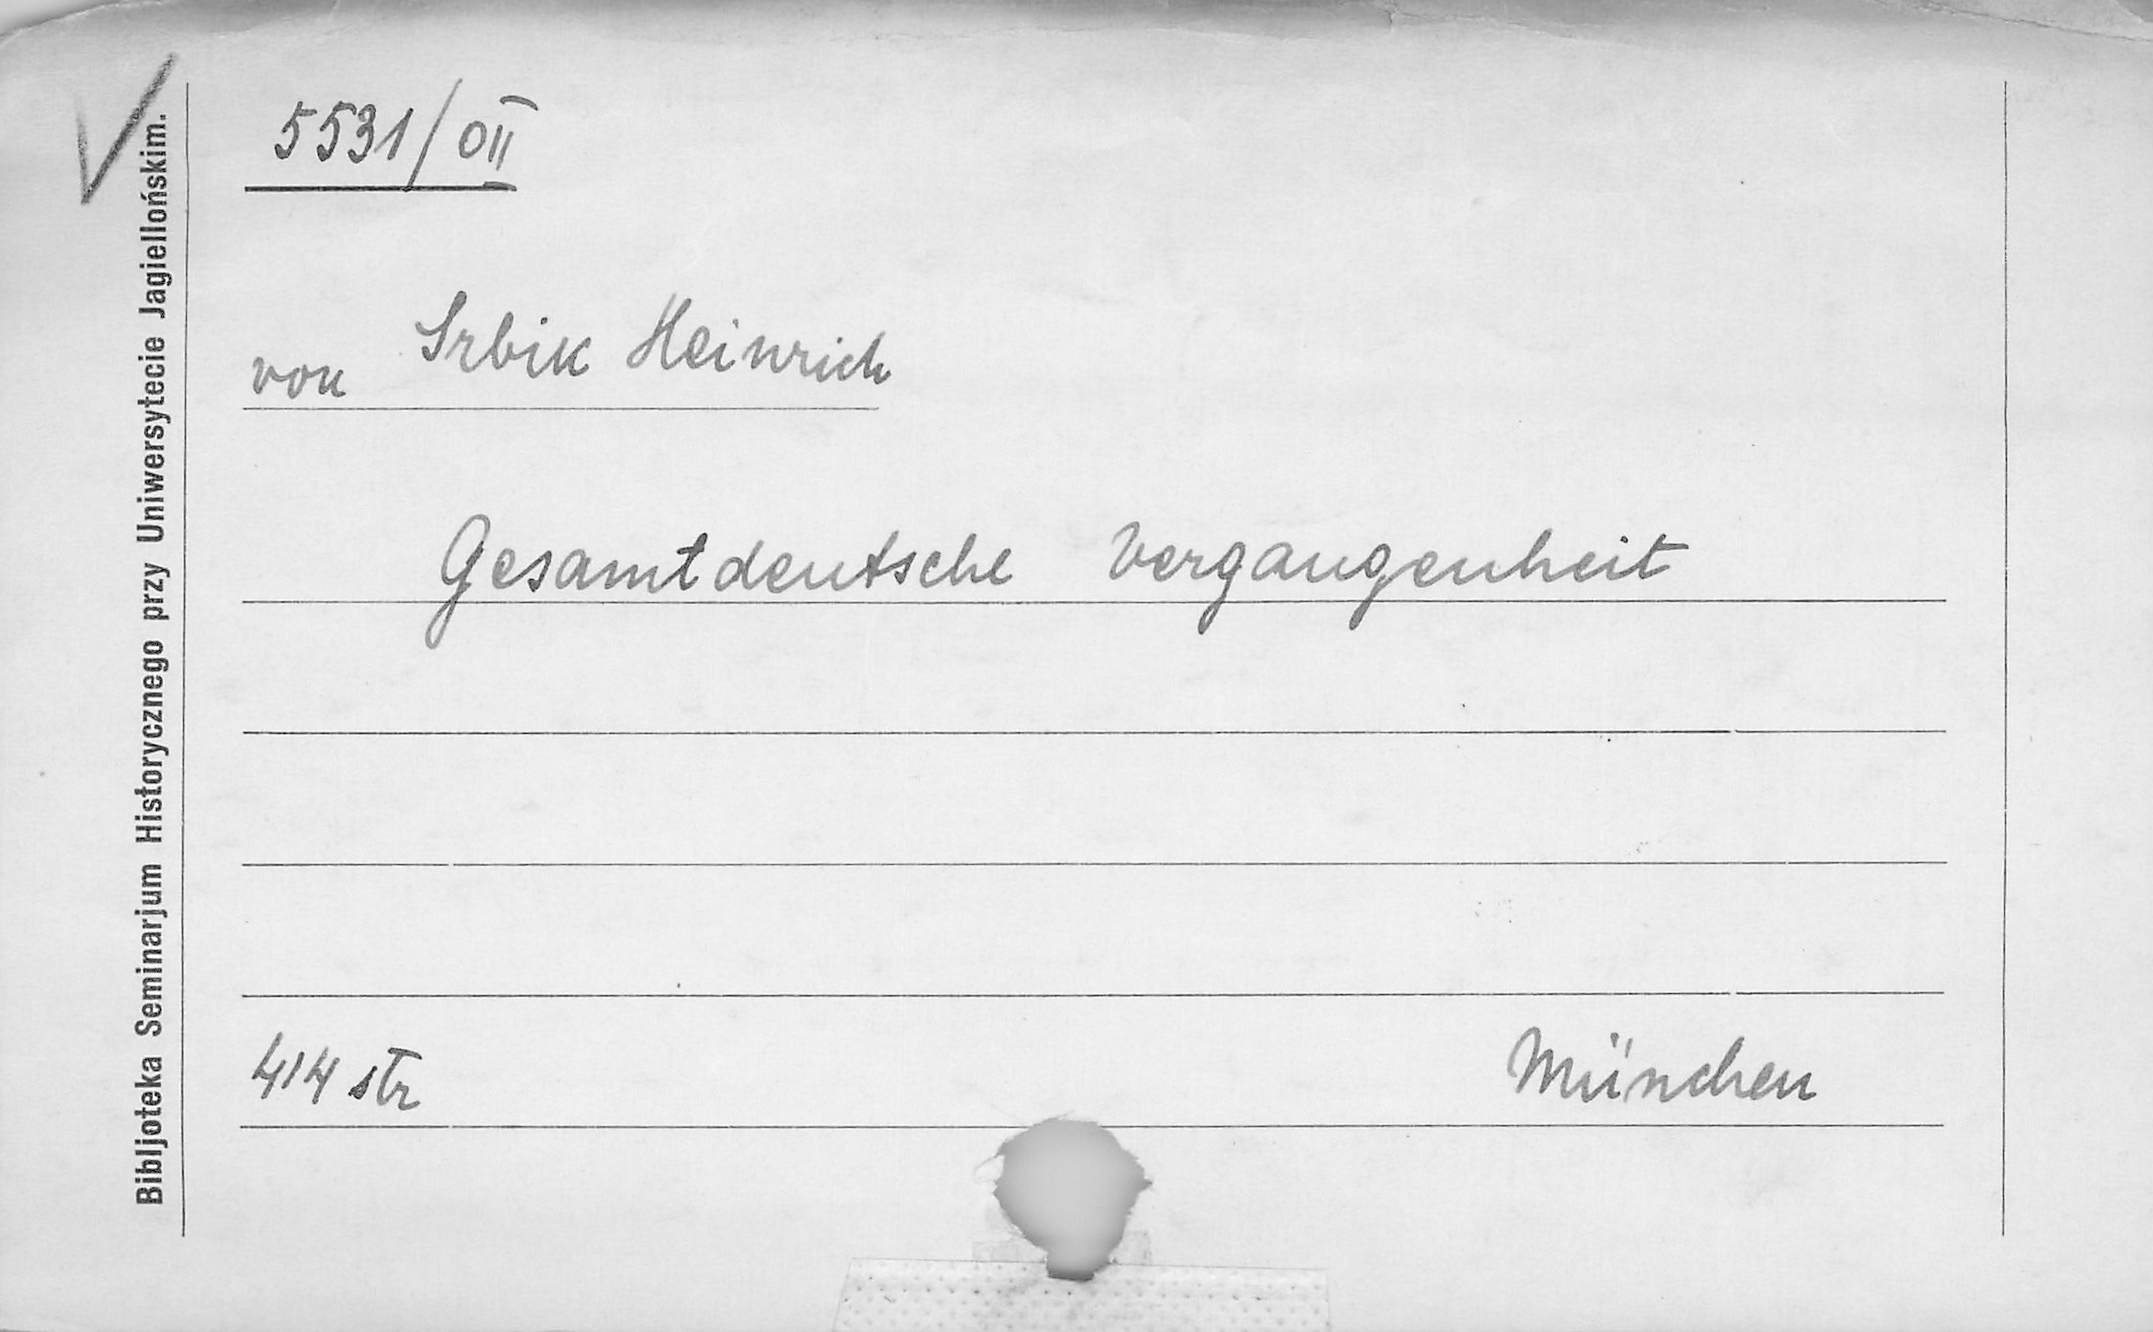 5531/OII
von Srbik Heinrich
Gesamtdeutsche Vergangenheit
414 str
München
Bibljoteka Seminarjum Historycznego przy Uniwersytecie Jagiellońskim.